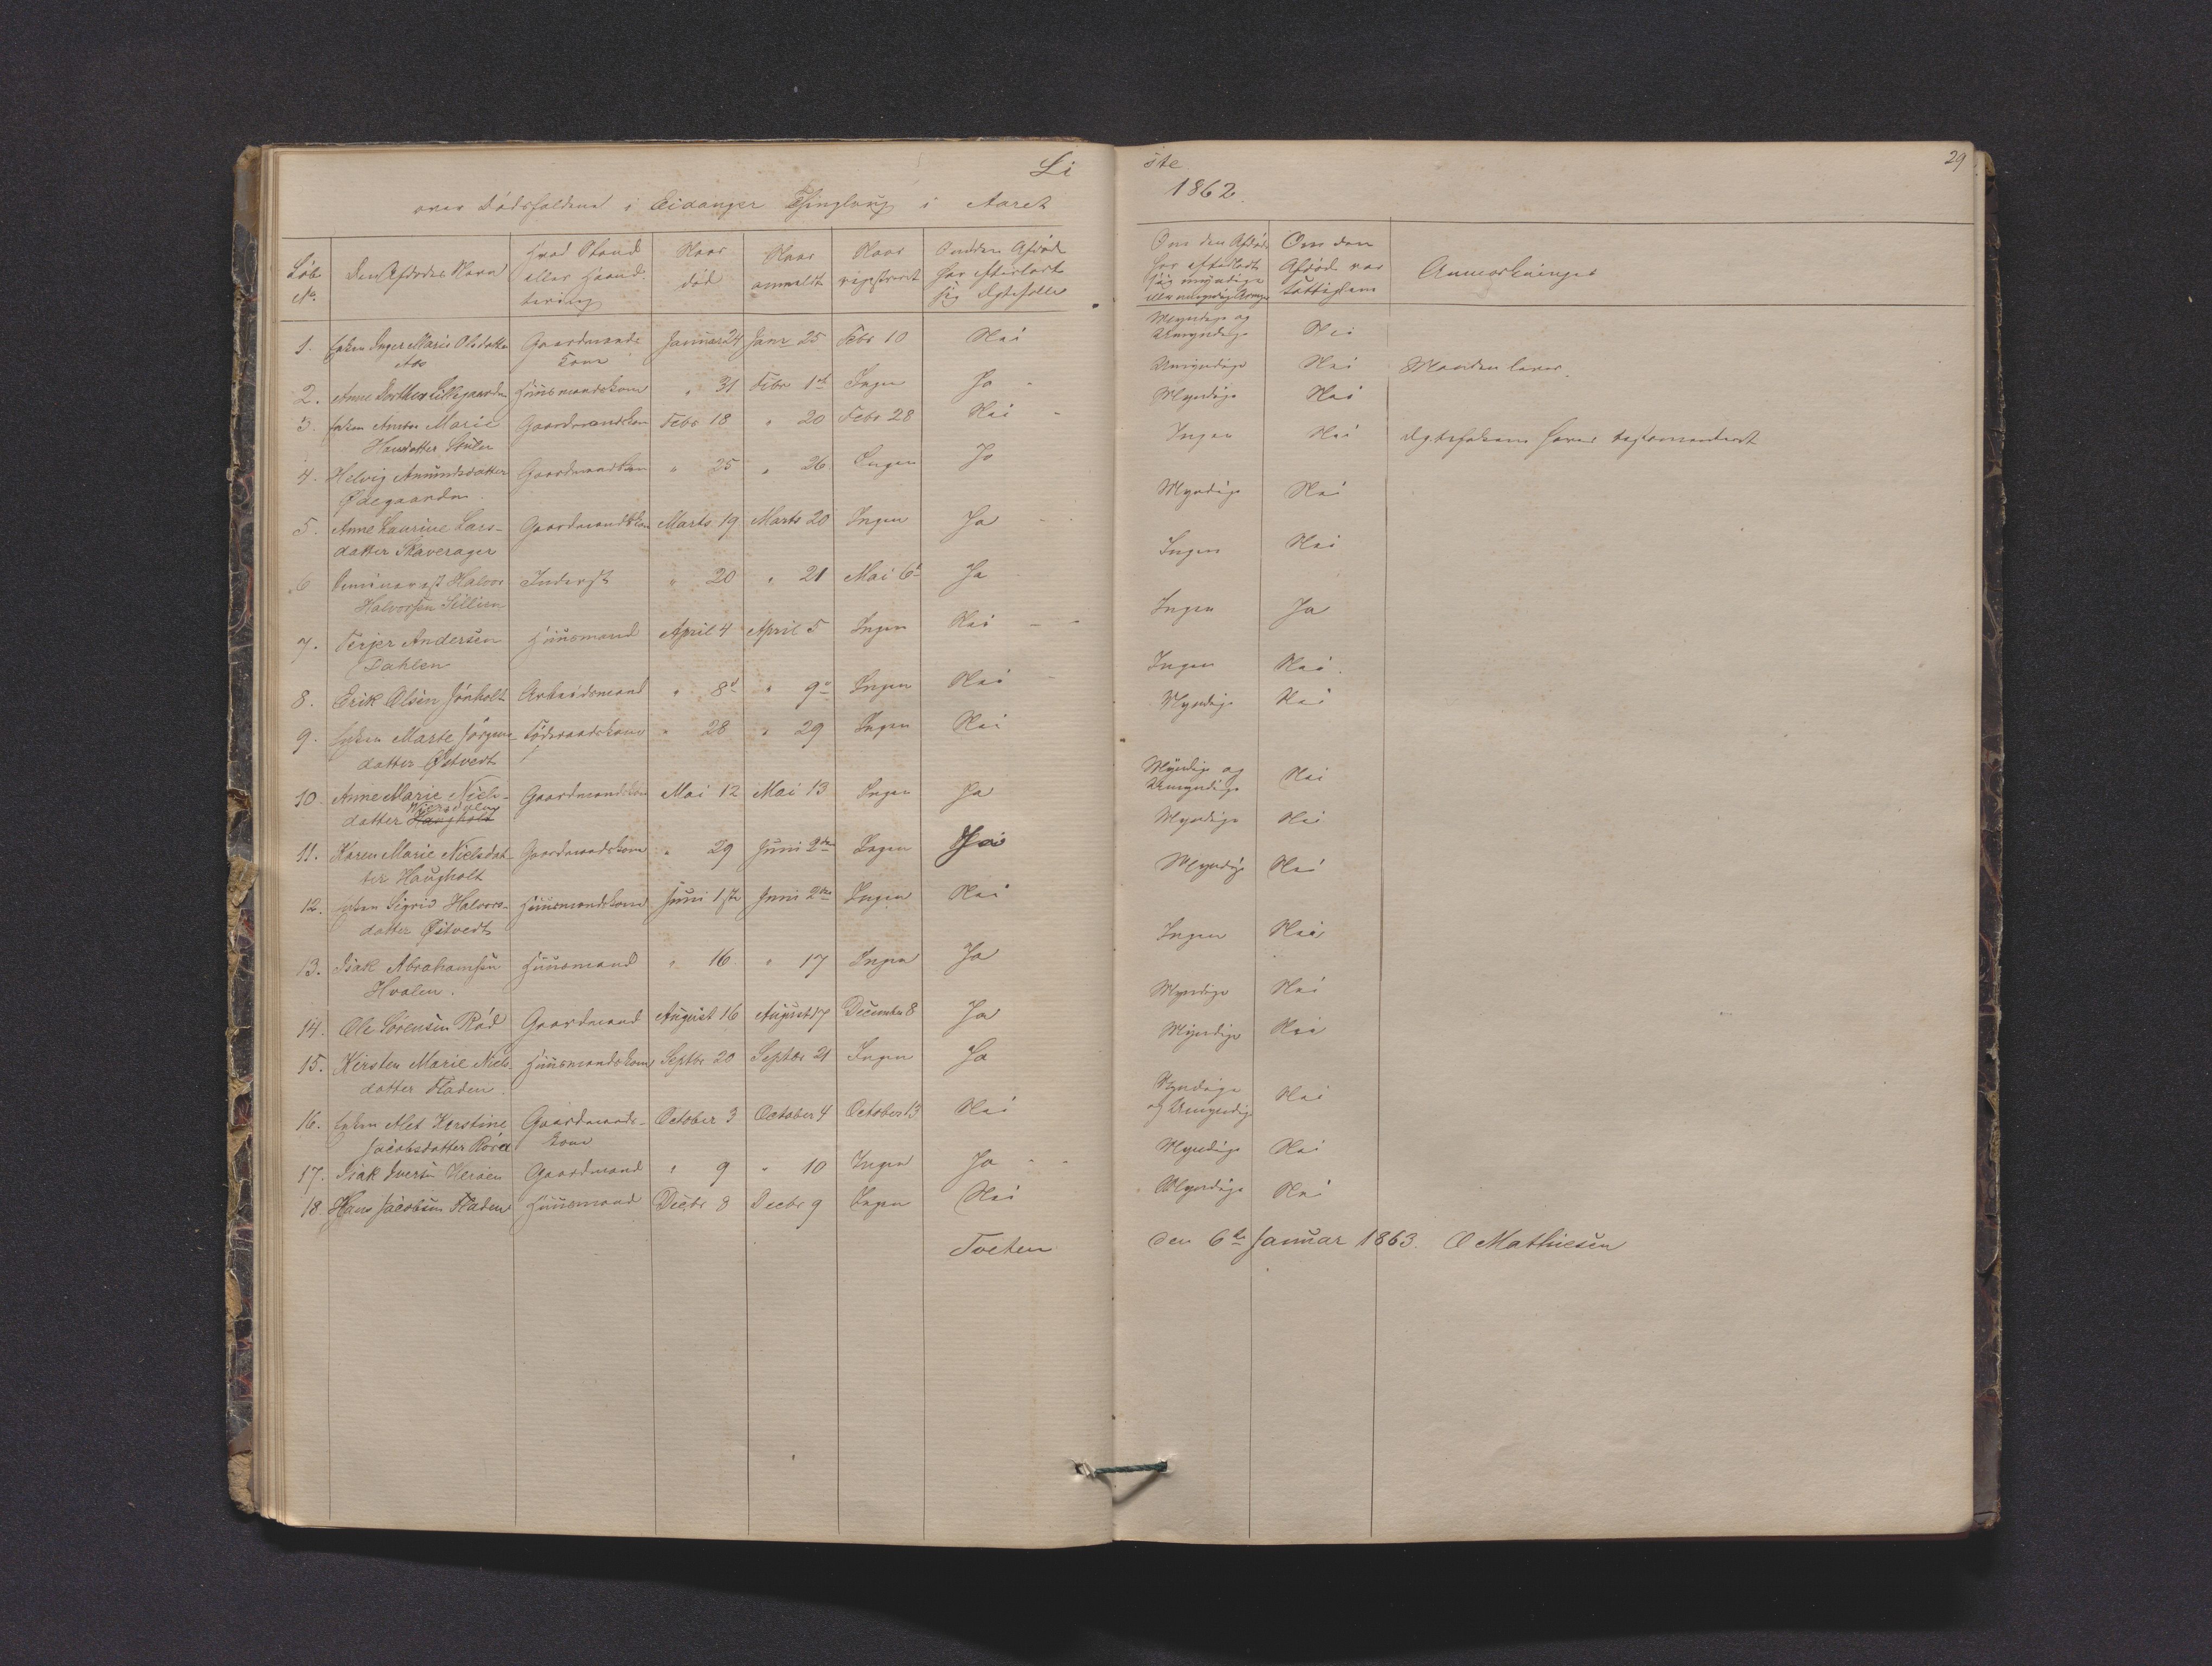 Li
over Dödsfaldene i Eidanger Thinglaug i Aaret
Löbe No. Den Afdødes Navn Hvad Stand eller Haandtering Naar död Naar anmeldt Naar registreret Om den Afdøde har efterladt sig Ægtefælle
1. Enken Inger Marie Olsdatter Gaardmands Januar 24 Janr 25 Febr 10 Nei
Aas Kone
2. Anne Dorthea Lillegaarden Huusmandskone " 31 Febr 1st Ingen Ja
3. Enken Anne Marie Gaardmandskone Febr 18 " 20 Febr 28 Nei
Hansdatter
4. Helvig Amundsdatter Gaardmandskone " 25 " 26 Ingen Ja
Ødegaarden
5. Anne Laurine Lars- Gaardmandskone Marts 19 Marts 20 Ingen Ja
datter Skaverager
6 Halvor Inderst " 20 " 21 Mai 6te Ja
Halvorsen
7. Terjer Andersen Huusmand April 4 April 5 Ingen Nei
Dahlen
8. Erik Olsen Jönholt Arbeidsmand " 8d " 9de Ingen Nei
9. Enken Marte Jörgens- Föderaadskone " 28 " 29 Ingen Nei
datter Østvedt
10. Anne Marie Niels- Gaardmandskone Mai 12 Mai 13 Ingen Ja
datter Haugholt
11. Karen Marie Nielsdat- Gaardmandskone " 29 Juni 2den Ingen Ja
ter Haugholt
12. Enken Sigrid Halvors- Huusmandskone Juni 1ste Juni 2den Ingen Nei
datter Østvedt
13. Isak Abrahamsen Huusmand " 16 " 17 Ingen Ja
Hvalen.
14. Ole Sörensen Röd Gaardmand August 16 August 17 December 8 Ja
15. Kirsten Marie Niels- Huusmandskone Septbr 20 Septbr 21 Ingen Ja
datter Fladen.
16. Enken Alet Kirstine Gaardmands- October 3 October 4 October 13 Nei
Jacobsdatter Röra Kone
17. Isak Iversen Heröen Gaardmand " 9 " 10 Ingen Ja
18. Hans Jacobsen Fladen Huusmand Decbr 8 Decbr 9 Ingen Nei
Tveten
ste
29
1862.
Om den Afdøde har efterladt sig myndige eller umyndige Arvinger Om den Afdøde var fattiglem Anmærkninger
Myndige og
Umyndige Nei
Umyndige Nei Manden lever.
Myndige Nei
Ingen Nei Ægtefolkene have testamenteret
Myndige Nei
Ingen Nei
Ingen Ja
Ingen Nei
Myndige Nei
Myndige og
Umyndige Nei
Myndige Nei
Myndige Nei
Ingen Nei
Myndige Nei
Myndige Nei
Myndige
og Umyndige Nei
Myndige Nei
Myndige Nei
den 6te Januar 1863. O Mathiesen